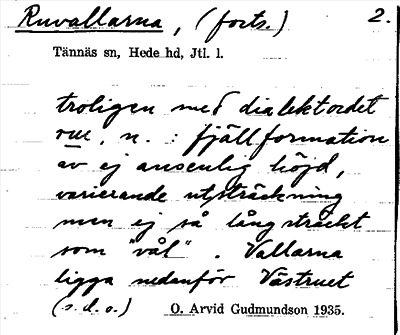 Ruvallarna, (forts.) 2.
Tännäs sn, Hede hd, Jtl. l.
troligen med dialektordet
ru, n. : fjällformation
av ej ansenlig höjd,
varierande utsträckning
men ej så långsträckt
som "vål". Vallarna
ligga nedanför Västruet
(s.d.o.) O. Arvid Gudmundson 1935.